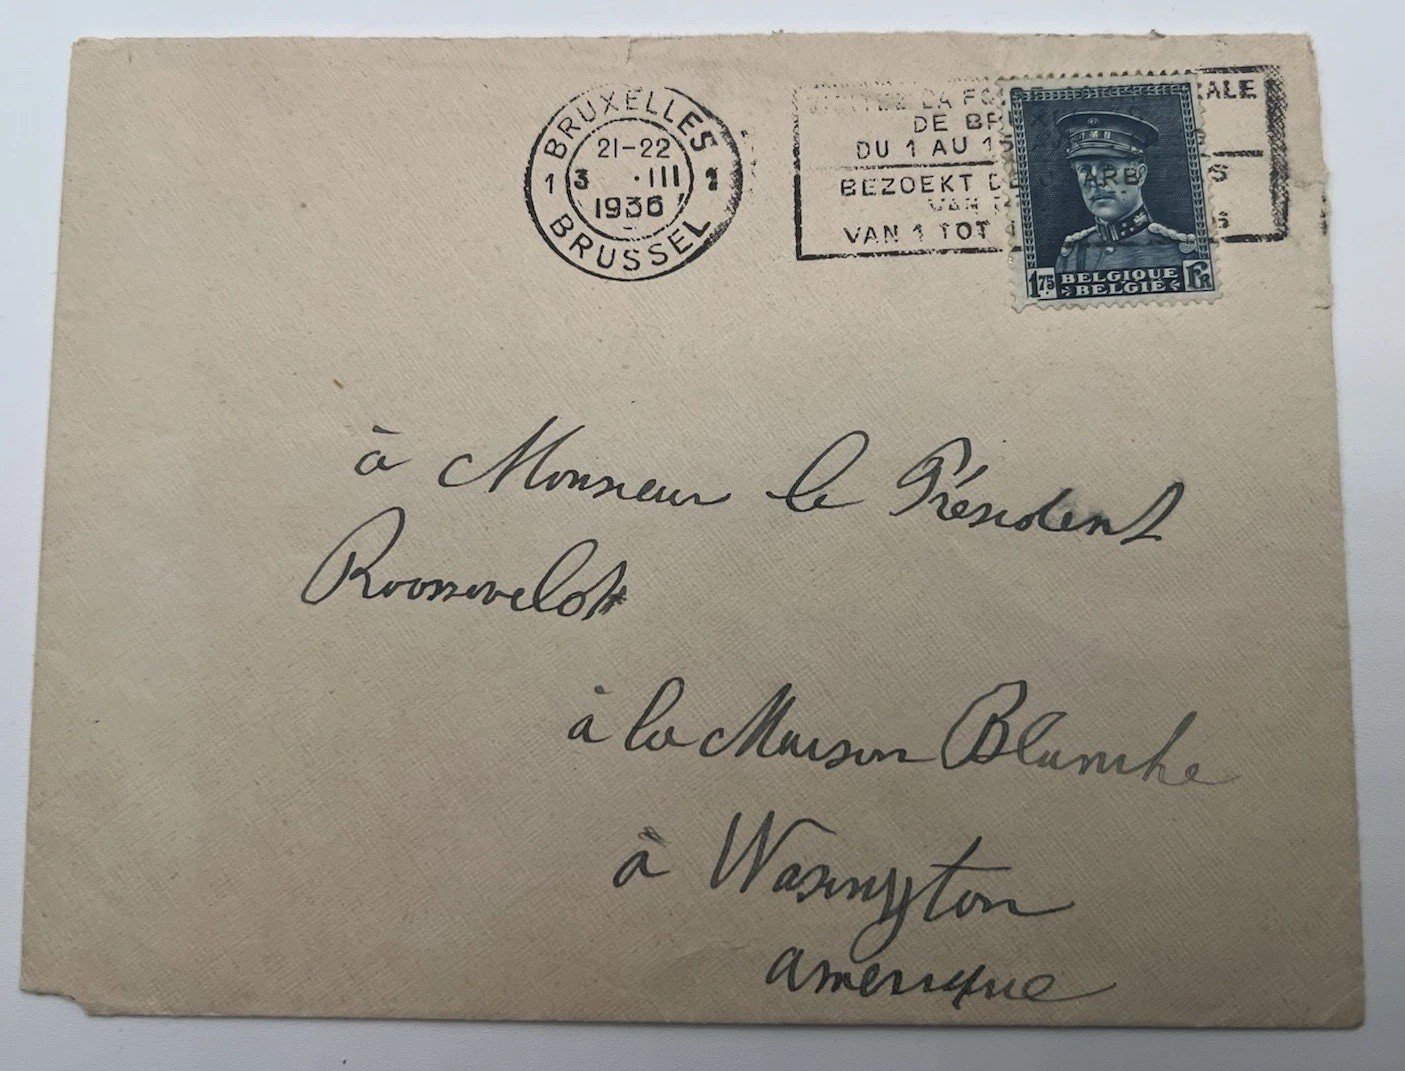 BRUXELLES
21-22
1 3 ·III 1
1936
BRUSSEL
LA ALE
DE
DU 1 AU
BEZOEKT
VAN
VAN 1 TOT
1.75 BELGIQUE Fr
BELGIË
à Monsieur le Président
Roosswelot
à la Maison Blanche
à Wasingyton
amerique